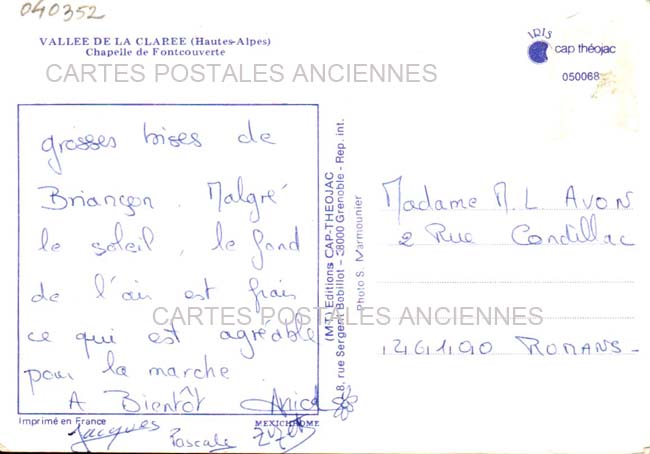 040352
VALLEE DE LA CLAREE (Hautes-Alpes)
Chapelle de Fontcouverte
IRIS
cap théojac
050068
CARTES POSTALES ANCIENNES
grosses bises de
Briançon. Malgré
le soleil, le fond
de l'air est frais
ce qui est agréable
pour la marche.
A Bientôt
Jacques
Pascale
CARTES POSTALES ANCIENNES
(M-T) Editions CAP-THEOJAC
8, rue Sergent Bobillot - 38000 Grenoble - Rep. int.
Photo S. Marmounier
Madame M. L AVON
2 Rue Condillac
26100 ROMANS-
Imprimé en France
MEXICHROME